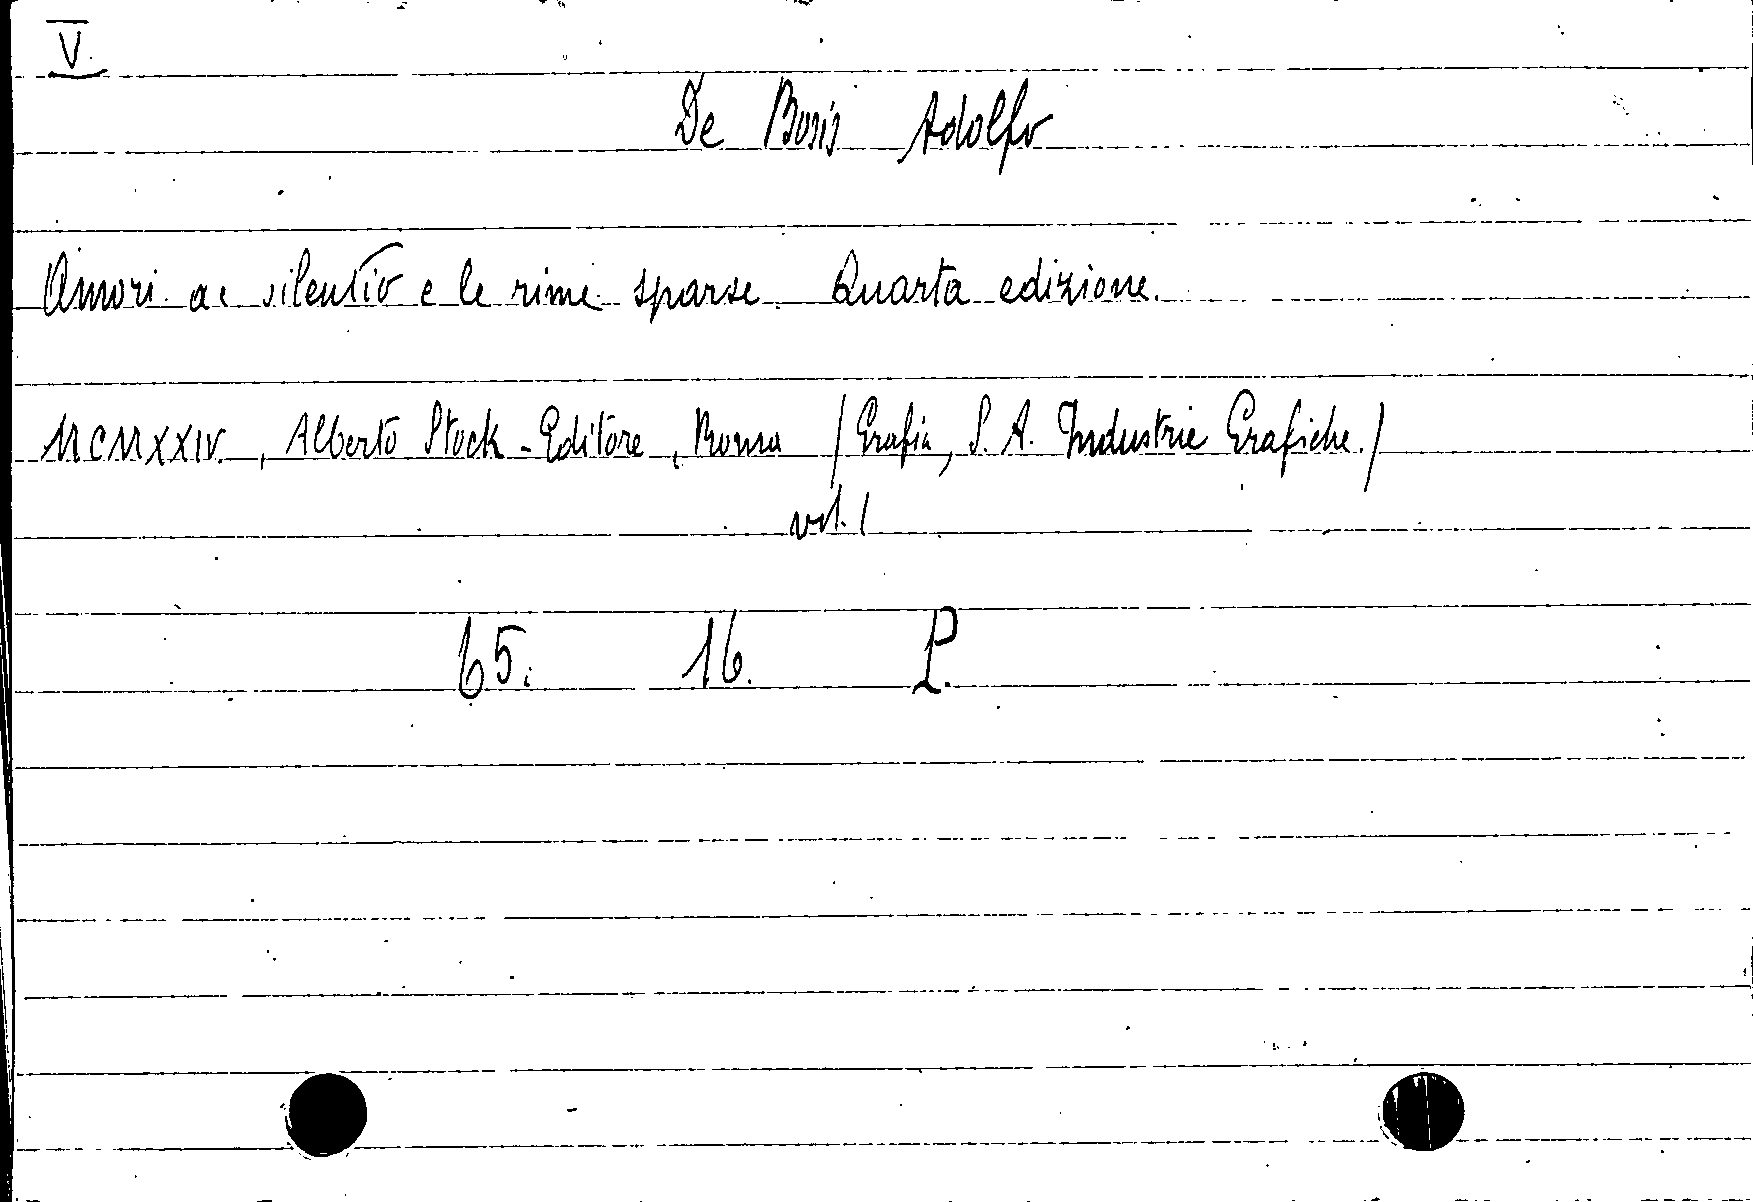 V.
De Bosis Adolfo
Amori ac silentio e le rime sparse. Quarta edizione.
MCMXXIV., Alberto Stock - Editore, Roma (Grafia, S. A. Industrie Grafiche.)
vol. 1
65. 16. P.